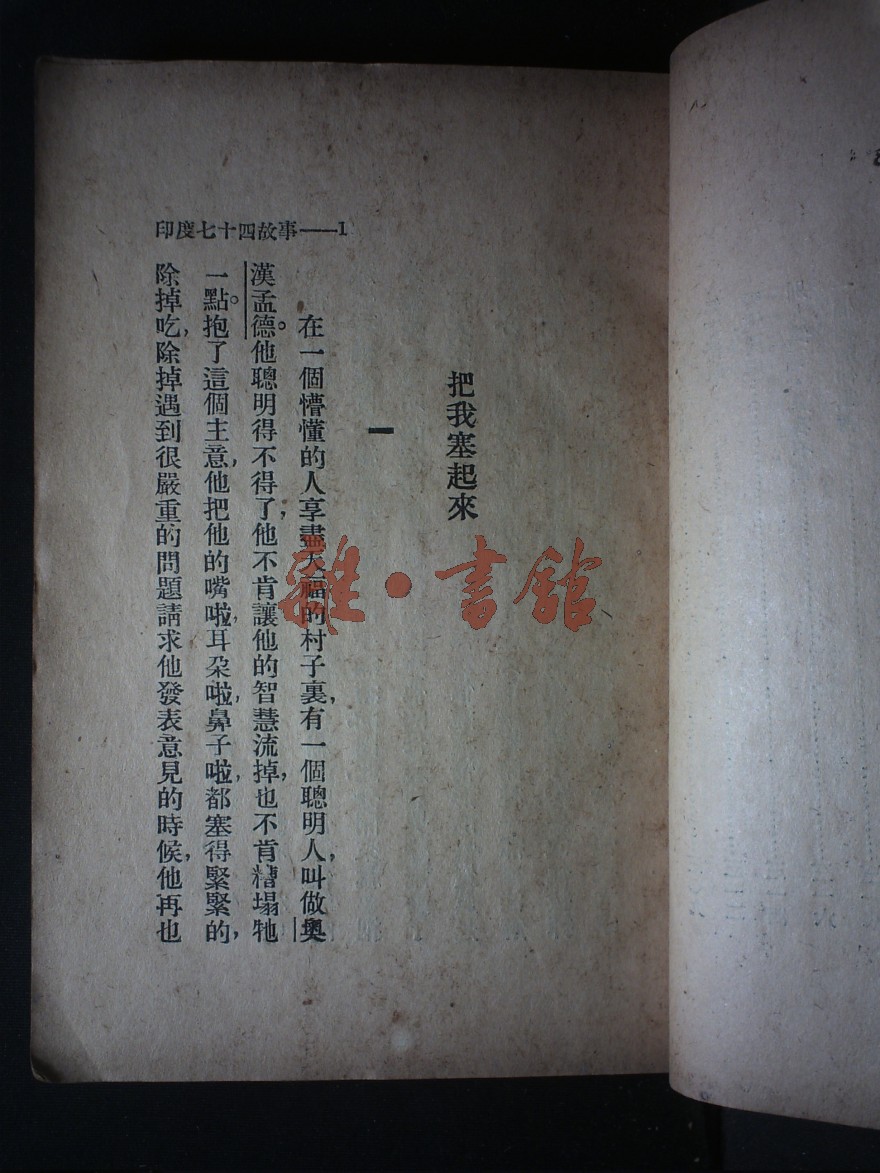 印度七十四故事——1
把我塞起來
一
在一個懵懂的人享盡天福的村子裏，有一個聰明人，叫做奧
漢孟德。他聰明得不得了，他不肯讓他的智慧流掉，也不肯糟塌牠
一點。抱了這個主意，他把他的嘴啦，耳朵啦，鼻子啦，都塞得緊緊的，
除掉吃，除掉遇到很嚴重的問題請求他發表意見的時候，他再也
雜·書館